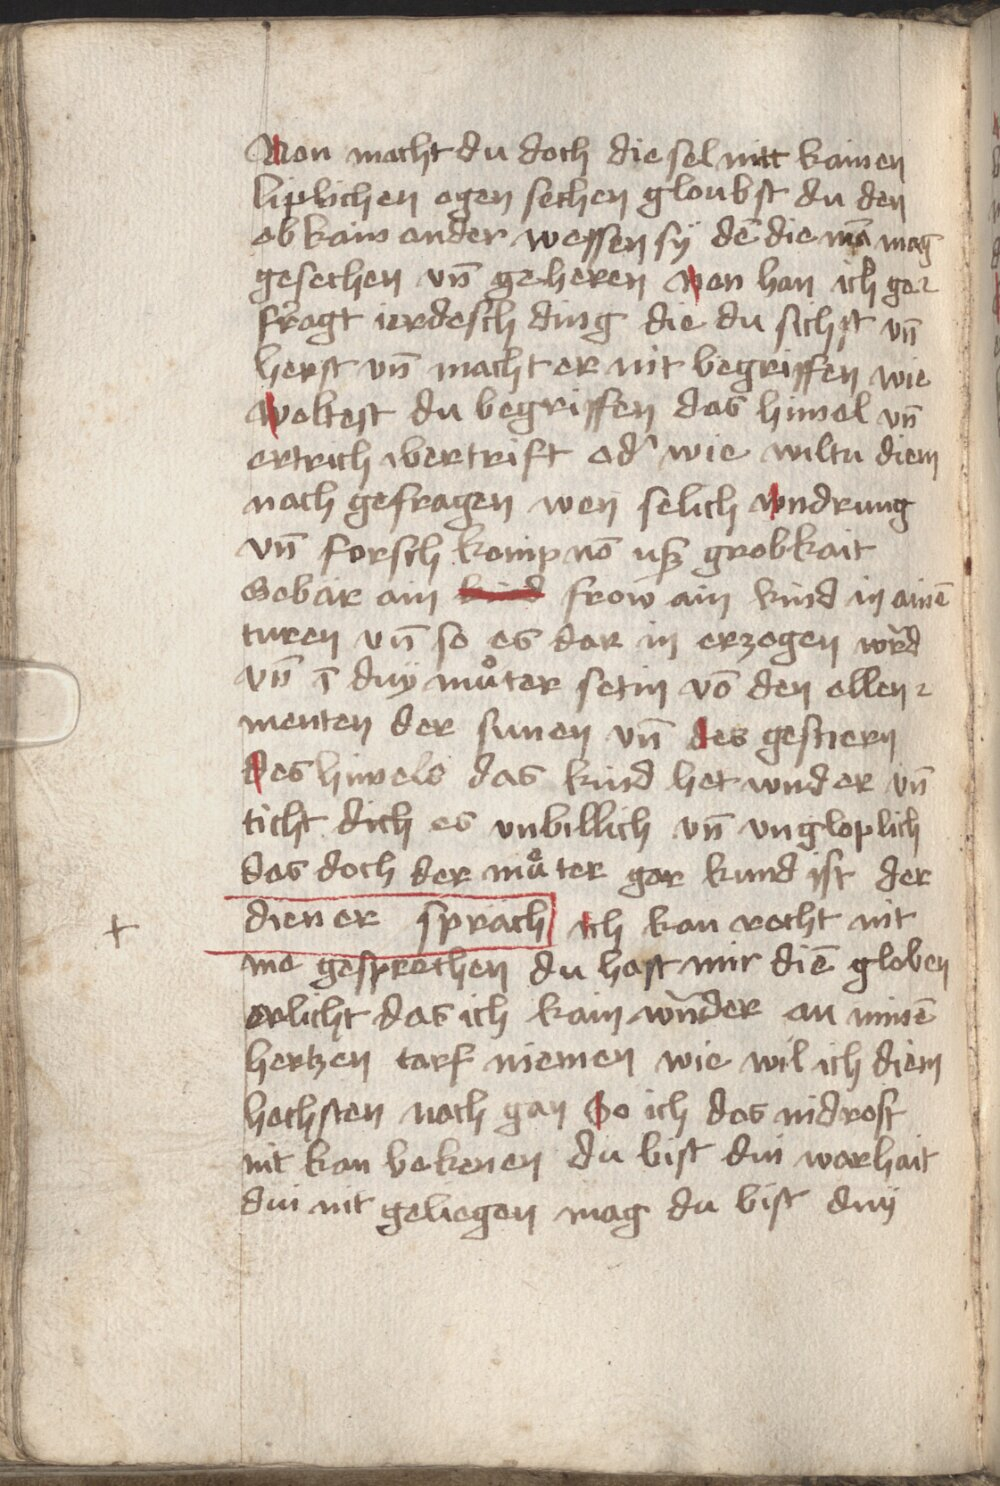 Non macht du doch die sel mitt kainen
liplichen ogen sechen gloubst du den
ob kain ander wessen sÿ dē die mā mag
gesechen vn̄ geheren won han ich ge-
fragt ierdesch ding die du sichst vn̄
herst vn̄ macht er nit begriffen wie
woltest du begriffen das himel vn̄
ertrich ubertrift od' wie wiltu diem
nach gefragen wen selich wndrung
vn̄ forsch komp vō uß grobkait
Gebār ain frow ain kind in ainē
turen vn̄ so es dar in erzogen wrd
vn̄ ī duÿ muͦter setin vō den ellen-
menten der sunen vn̄ des gestiern
des himels das kind het wnder vn̄
ticht dich es unbillich vn̄ ungloplich
das doch der muͦter gar kund ist der
diener sprach ich kan recht nit
me gesprechen du hast mir diē globen
erlicht das ich kain wnder an minē
hertzen tarf niemen wie wil ich diem
hochsten noch gan So ich das nidrost
nit kan bekenen du bist die warhait
dui nit geliegen mag du bist duÿ
+